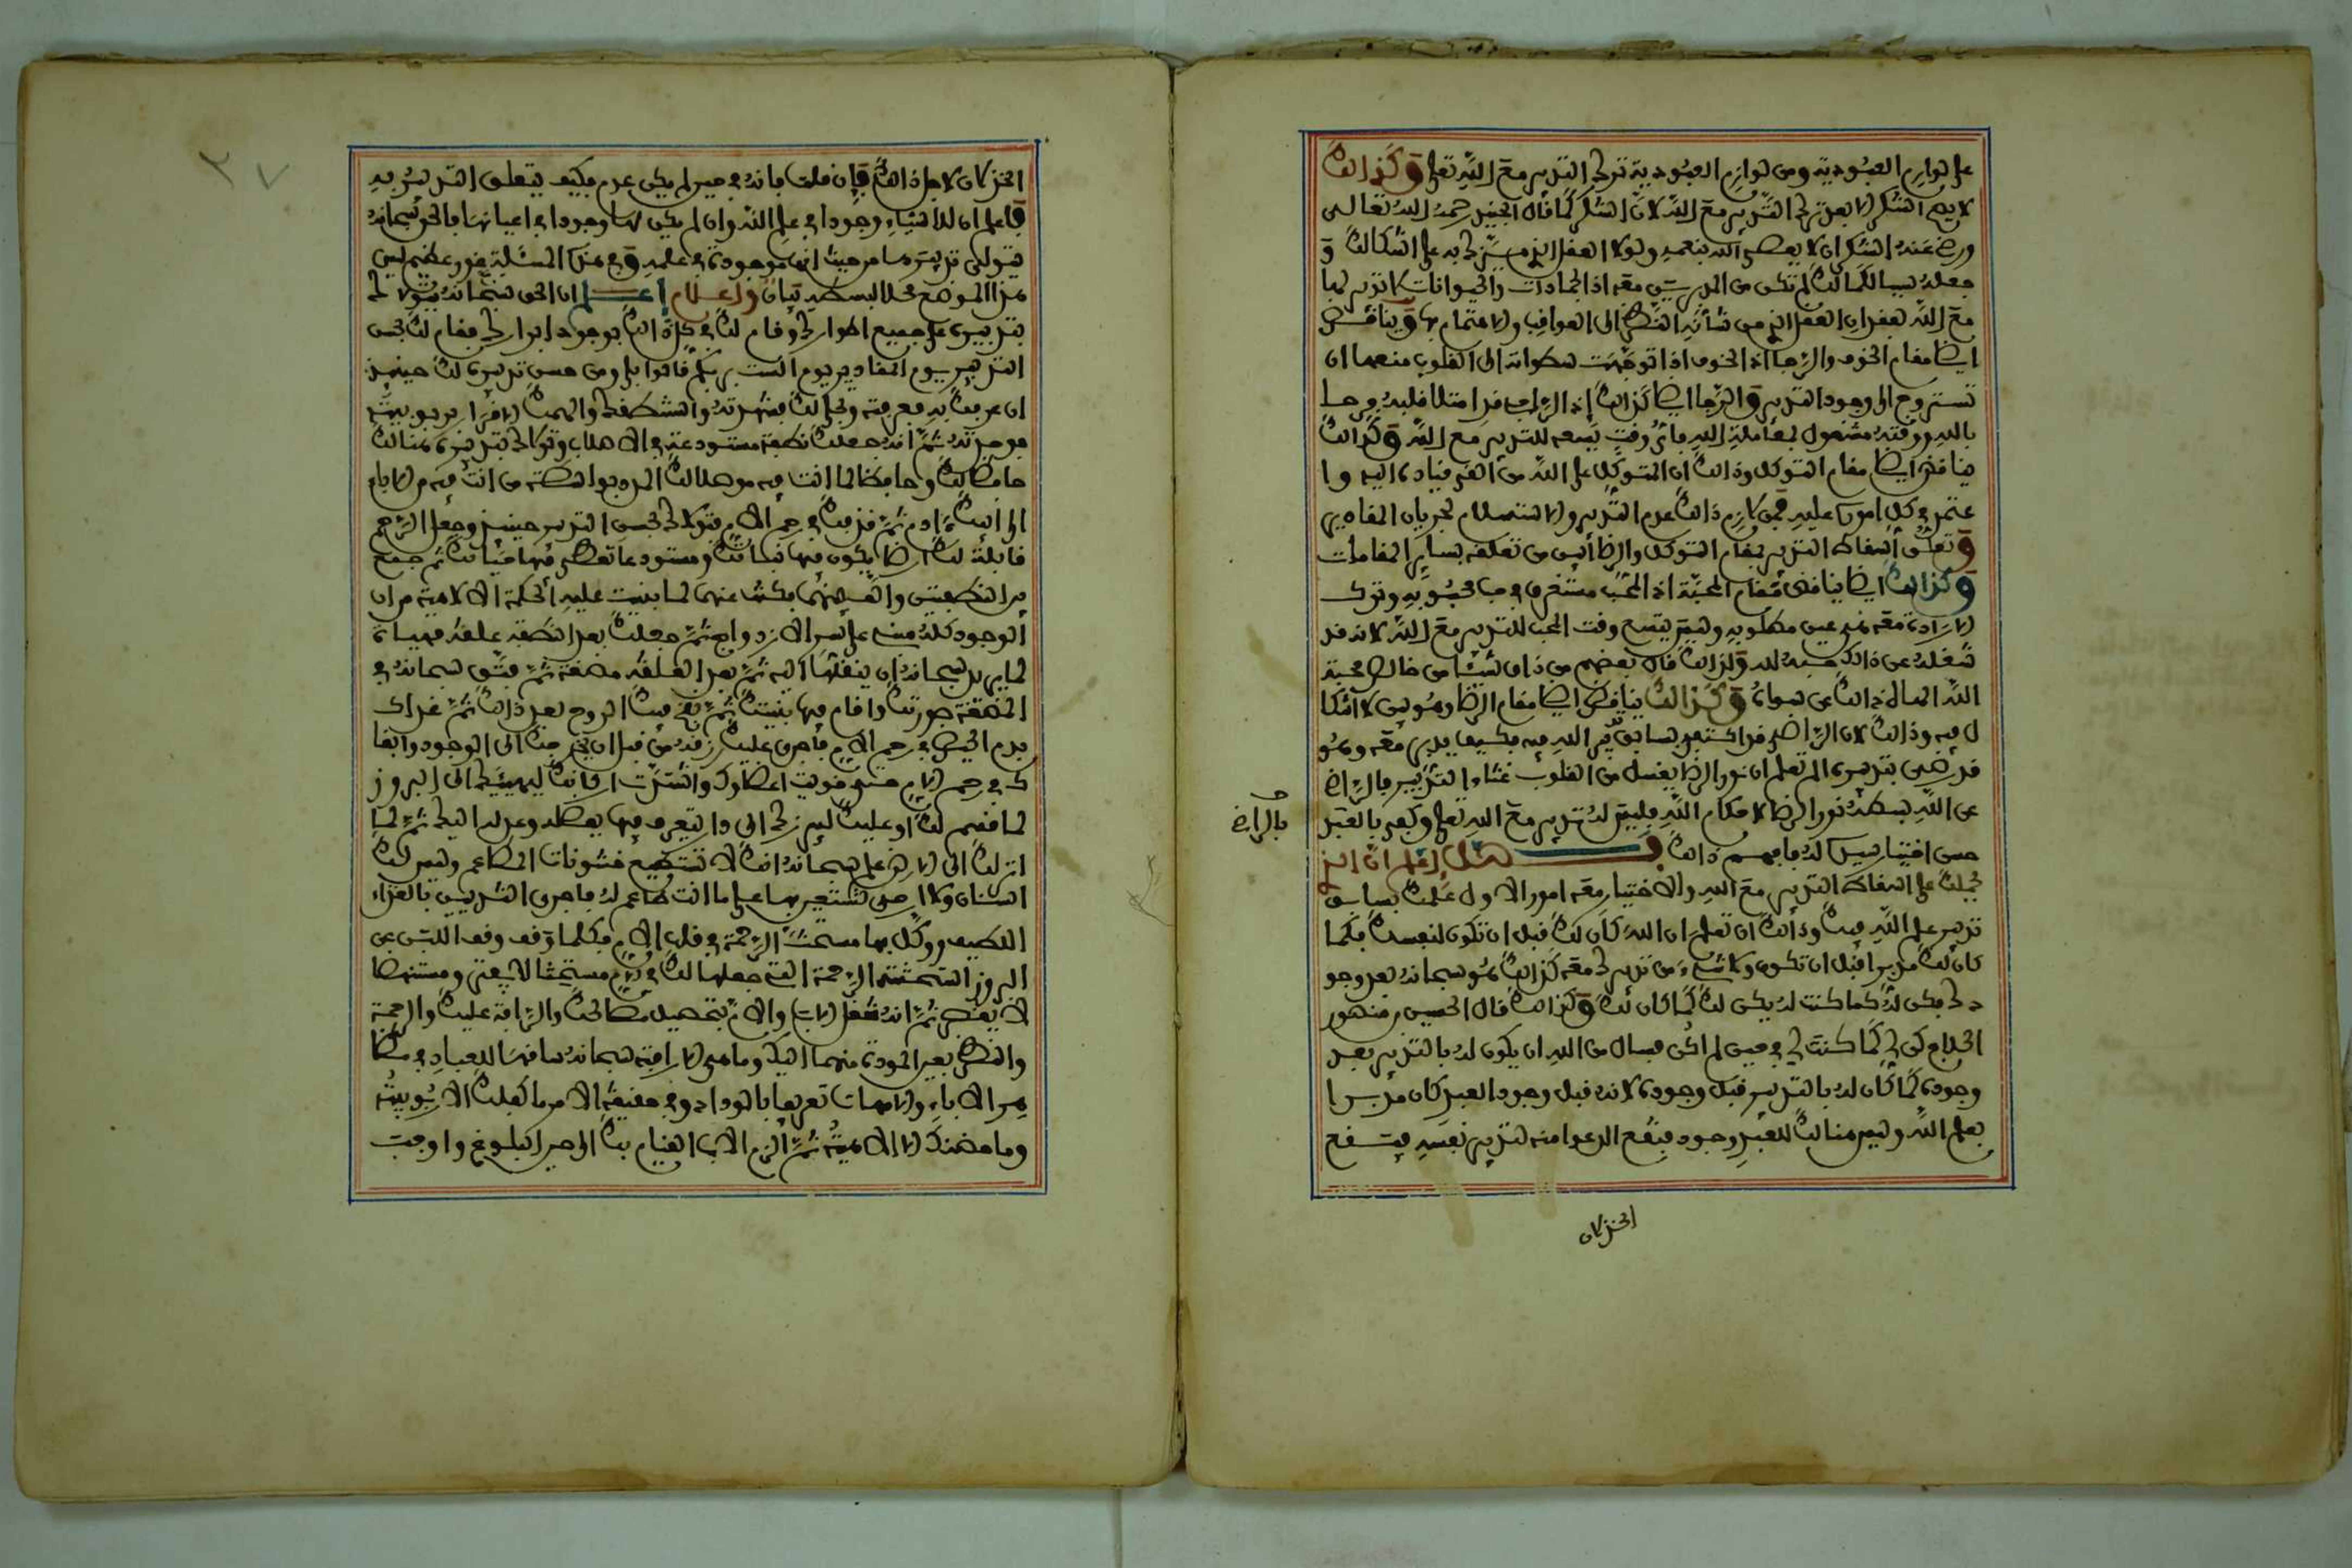 على لوازم العبودية ومن لوازم العبودية ترك التدبير مع الله تعلى وكذالك
لا يصح الشكر الا بعد ترك التدبير مع الله لان الشكر كما قال الجنيد رحمه الله تعالى
ورضي عنه الشكر ان لا يعصى الله بنعمه ولولا العقل الذي ميزك به على اشكالك و
جعله سببا لكمالك لم تكن من المدبرين معه اذ الجمادات والحيوانات لا تدبير لها
مع الله لفقدان العقل الذي من شأنه النظر الى العواقب والاهتمام بها ويناقض
ايضا مقام الخوف والرجا اذ الخوف اذا توجهت سطواته الى القلوب منعها ان
تستروح الى وجود التدبير والرجا ايضا كذالك اذ الراجي قد امتلا قلبه فرحا
بالله ووقته مشغول بمعاملة الله فاي وقت يسعه للتدبير مع الله وكذالك
يناقض ايضا مقام التوكل وذالك ان المتوكل على الله من القى قياده اليه وا
عتمد في كل اموره عليه فمن لازم ذالك عدم التدبير والاستسلام لجريان المقادير
وتعلق اسقاط التدبير بمقام التوكل والرضا ابين من تعلقه بساير المقامات
وكذالك ايضا يناقض مقام المحبة اذ المحب مستغرق في حب محبوبه وترك
الارادة معه هي عين مطلوبه وليس يتسع وقت المحب للتدبير مع الله لانه قد
شغله عن ذالك حبه لله ولذالك قال بعضهم من ذاق شيئا من خالص محبة
الله الهاه ذالك عن سواه وكذالك يناقض ايضا مقام الرضا وهو بين لا اشكا
ل فيه وذالك لان الراضي قد اكتفى بسابق تدبير الله فيه فكيف يدبر معه وهو
قد رضي بتدبيره الم تعلم ان نور الرضا يغسل من القلوب غثاء التدبير فالراضي
عن الله بسطه نور الرضا لاحكام الله فليس له تدبير مع الله تعلى وكفى بالعبد
حسن اختيار سيده له فافهم ذالك فصل اعلم ان الذي
يحملك على اسقاط التدبير مع الله والاختيار معه امور الاول علمك بسابق
تدبير الله فيك وذالك ان تعلم ان الله كان لك قبل ان تكون لنفسك فكما
كان لك مدبرا قبل ان تكون ولا شيء من تدبيرك معه كذالك هو سبحانه بعد وجو
دك فكن له كما كنت له يكن لك كما كان لك وكذالك قال الحسين بن منصور
الحلاج كن لي كما كنت لي في حين لم اكن فسال من الله ان يكون له بالتدبير بعد
وجوده كما كان له بالتدبير قبل وجوده لانه قبل وجود العبد كان مدبرا
بعلم الله وليس هنالك للعبد وجود فيقع الدعوا منه لتدبير نفسه فيقع
بالراضي
الخذلان
الخذلان لاجل ذالك فإن قلت فانه في حين لم يكن عدم فكيف يتعلق التدبير به
فاعلم ان للاشياء وجودا في علم الله وان لم يكن لها وجود في اعيانها فالحق سبحانه
يتولى تدبيرها من حيث انها موجودة في علمه وفي هذه المسئلة غور عظيم ليس
هذا الموضع محلا لبسطه تبيان واعلام اعلم ان الحق سبحانه يتولاك
بتدبيره على جميع اطوارك وقام لك في كل ذالك بوجود ابرارك فقام لك بحسن
التدبير يوم المقادير يوم الست بربكم قالوا بلى ومن حسن تدبيره لك حينئذ
ان عرفك به فعرفته وتجلى لك فشهدته واستنطقك والهمك الاقرار بربوبيته
فوحدته ثم انه جعلك نطفة مستودعة في الاصلاب وتولاك بتدبيره هنالك
حافظا لك وحافظا لما انت فيه موصلا لك المدد بواسطة من انت فيه من الاباء
الى ابيك ءادم ثم قذفك في رحم الام فتولاك بحسن التدبير حينئذ وجعل الرحم
قابلة لك ارضا يكون فيها نباتك ومستودعا تعطى فيها حياتك ثم جمع
بين النطفتين والف بينهما فكنت عنهما لما بنيت عليه الحكمة الالاهية من ان
الوجود كله مبني على سر الازدواج ثم جعلك بعد النطفة علقة مهياة
لما يريد سبحانه ان ينقلها اليه ثم بعد العلقة مضغة ثم فتق سبحانه في
المضغة صورتك واقام فيها بنيتك ثم نفخ فيك الروح بعد ذالك ثم غذاك
بدم الحيض في رحم الام فاجرى عليك رزقه من قبل ان يخرجك الى الوجود وابقا
ك في رحم الام حتى قويت اعضاوك واشتدت اركانك ليهيئك الى البروز
لما قسم لك او عليك ليبرزك الى دار يتعرف فيها بفضله وعدله اليك ثم لما
انزلك الى الارض علم سبحانه انك لا تستطيع خشونات المطاعم وليس لك
اسنان ولا ارحى تستعين بها على ما انت طاعم له فاجرى الثديين بالغذاء
اللطيف ووكل بهما مستحث الرحمة في قلب الام فكلما وقف وقف اللبن عن
البروز استحثته الرحمة التي جعلها لك في الام مستحثا لا يفتر ومستنهضا
لا يقصر ثم انه شغل الاب والام بتحصيل مصالحك والرافة عليك والرحمة
والنظر بعين المودة منهما اليك وما هي الا رافته سبحانه ساقها للعباد في مظا
هر الاباء والامهات تعريفا بالوداد وفي حقيقة الامر ما كفلك الا ربوبيته
وما حضنك الا الاهيته ثم الزم الاب القيام بك الى حين البلوغ واوجب